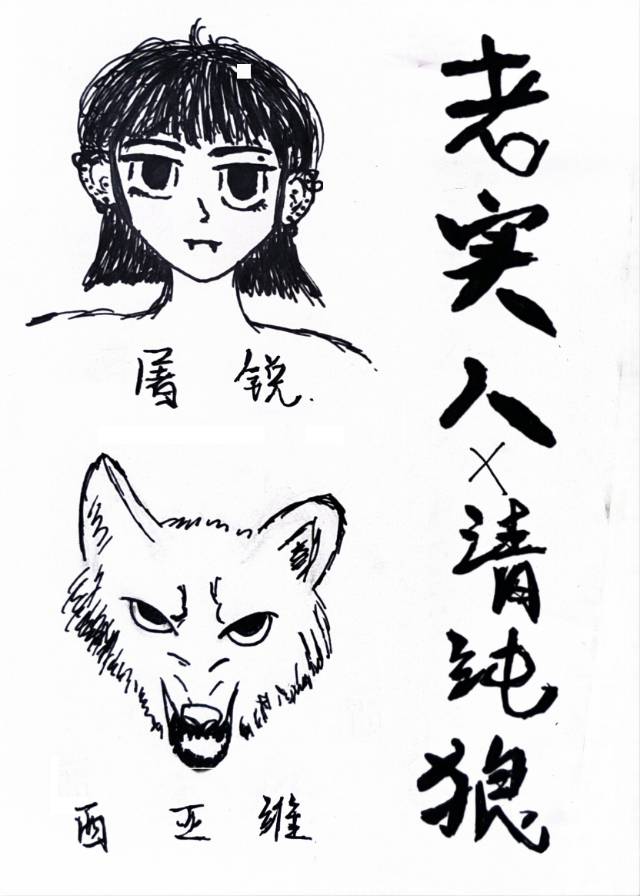 老实人×清纯狼
屠锐.
西亚维